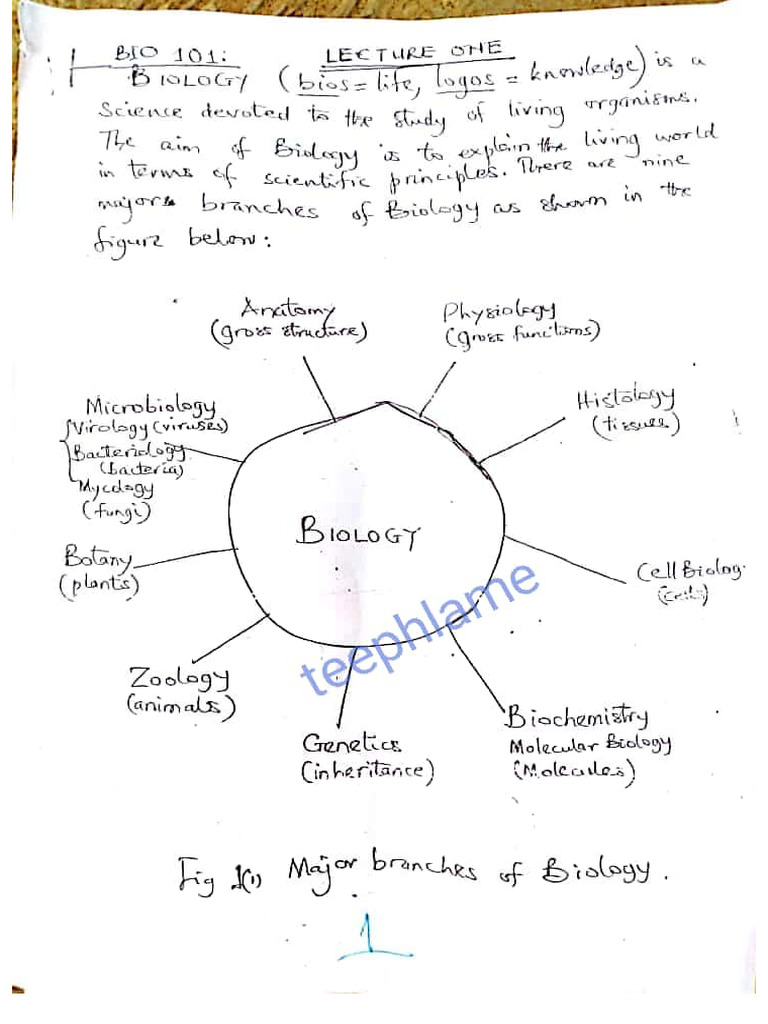 BIO 101: LECTURE ONE
BIOLOGY (bios = life, logos = knowledge) is a
Science devoted to the study of living organisms.
The aim of Biology is to explain the living world
in terms of scientific principles. There are nine
majors branches of Biology as shown in the
figure below:
Anatomy
(gross structure)
Physiology
(gross functions)
Histology
(tissues)
Cell Biolog
(cells)
Biochemistry
Molecular Biology
(Molecules)
Genetics
(inheritance)
Zoology
(animals)
Botany
(plants)
Microbiology
Virology (viruses)
Bacteriology
(bacteria)
Mycology
(fungi)
BIOLOGY
teephlame
Fig 1(1) Major branches of Biology.
1